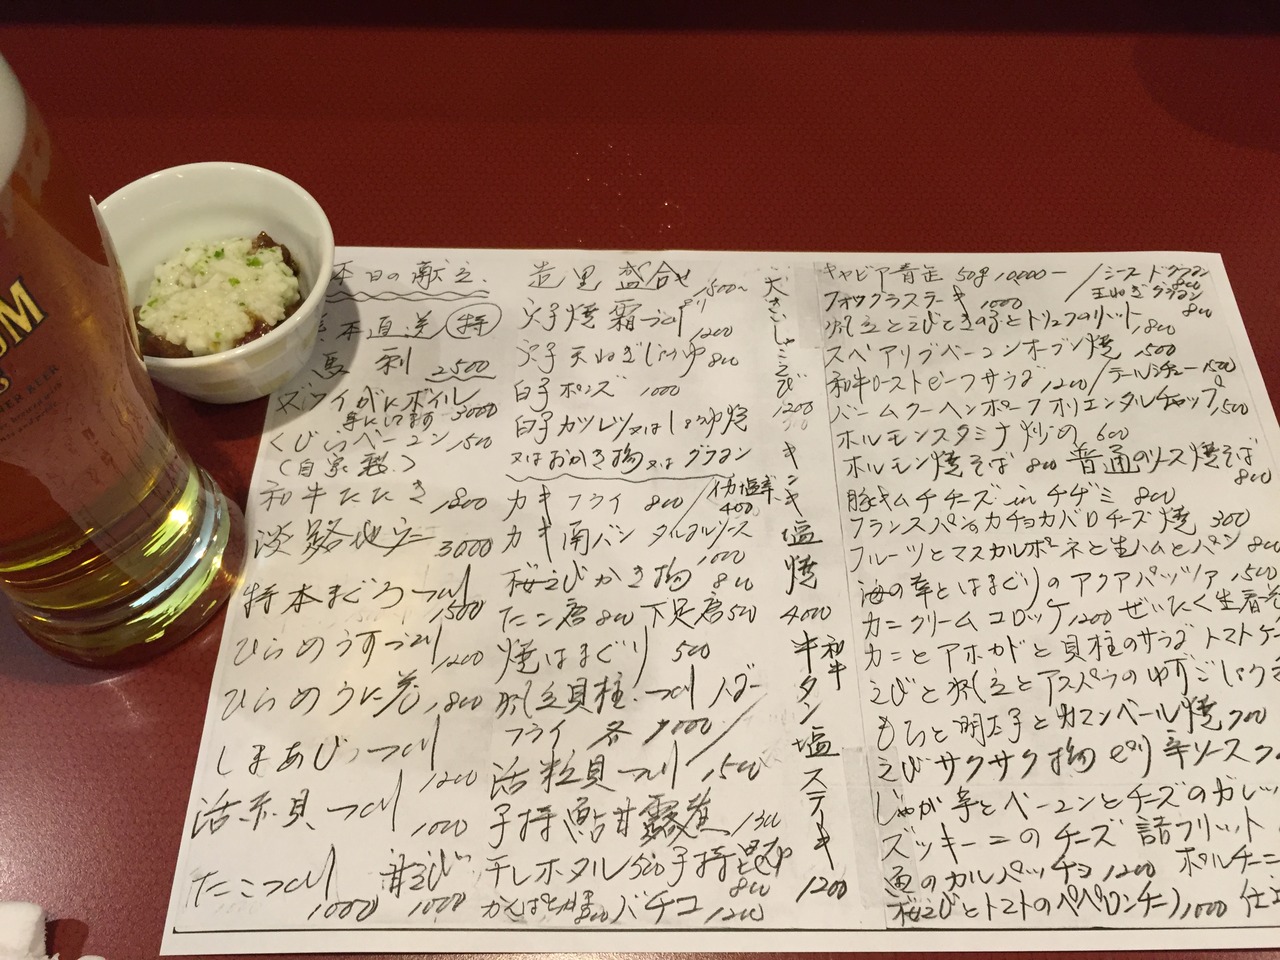 UM
BEER
本日の献立
本直送 特
馬刺 2500
ズワイがにボイル
辛にしてます 3000
くじらベーコン 1500
(自家製)
和牛たたき 1800
淡路地
3000
特本まぐろつくり
1500
ひらめうすづくり
1200
ひらめうに巻 1800
しまあじつくり
1200
活赤貝つくり
1000
たこつくり
1000
甘えび
1000
造里盛合せ
1500~
穴子焼霜づくり
1200
穴子天ねぎじょうゆ 800
白子ポンズ 1000
白子カツレツ又はしょうゆ焼
又はおかき揚又はグラタン
カキフライ 800
イカ塩辛
400
カキ南バンタルタルソース
1000
桜えびかき揚 800
たこ唐 800 下足唐 500
焼はまぐり 500
帆立貝柱つくり バター
フライ 各 1000
活粒貝つくり 1500
子持鮎甘露煮 1300
干しホタル 500 子持昆布
800
バチコ 1200
1200
キンキ塩焼
4000
和牛
牛タン塩ステーキ
1200
キャビア青缶 50g 10,000-
シーフードグラタン
800
玉ねぎグラタン
800
フォワグラステーキ 1000
帆立とえびときの子とトリュフのリゾット 1800
スペアリブベーコンオーブン焼 1500
和牛ローストビーフサラダ 1200 / テールシチュー 1500
バームクーヘンポークオリエンタルチャップ 1500
ホルモンスタミナ炒め 600
ホルモン焼そば 800 普通のソース焼そば
800
豚キムチチーズinチヂミ 800
フランスパンのカチョカバロチーズ焼 300
フルーツとマスカルポーネと生ハムとパン 800
海の幸とはまぐりのアクアパッツァ 1500
カニクリームコロッケ 1200 ぜいたく生春
カニとアボカドと貝柱のサラダ トマトケ
えびと帆立とアスパラのゆずこしょう
もちと明太子とカマンベール焼 700
えびサクサク揚 ピリ辛ソース
じゃが芋とベーコンとチーズのガレッ
ズッキーニのチーズ詰フリット
通のカルパッチョ 1200 ポルチーニ
桜えびとトマトのペペロンチーノ 1000